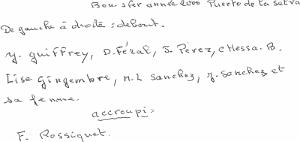 Bonsfer année 2000 Puerto de la Selva
De gauche à droite : debout.
y. guiffrey, D. Féral, J. Perez, c Messa. B.
Lise gingembre, M. L Sanchez, y. Sanchez et
sa femme.
accroupi :
F. Rossiguet.